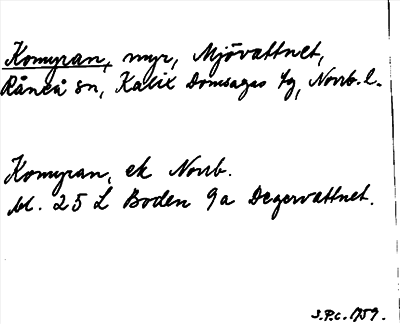 Komyran, myr, Mjövattnet,
Råneå sn, Kalix Domsagas tg, Norrb. l.
Komyran, ek Norrb.
bl. 25 L Boden 9a Degervattnet.
S.P.C. 1959.